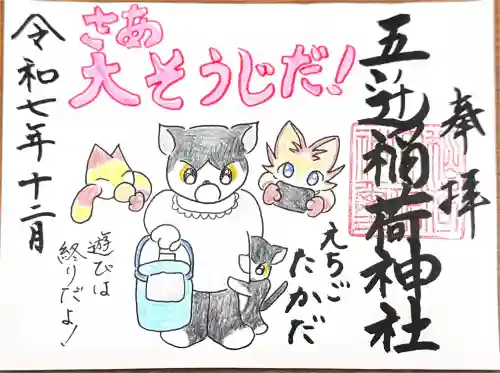 奉拝
五辻稲荷神社
さあ
大そうじだ!
令和七年十二月
えちご
たかだ
遊びは
終りだよ!